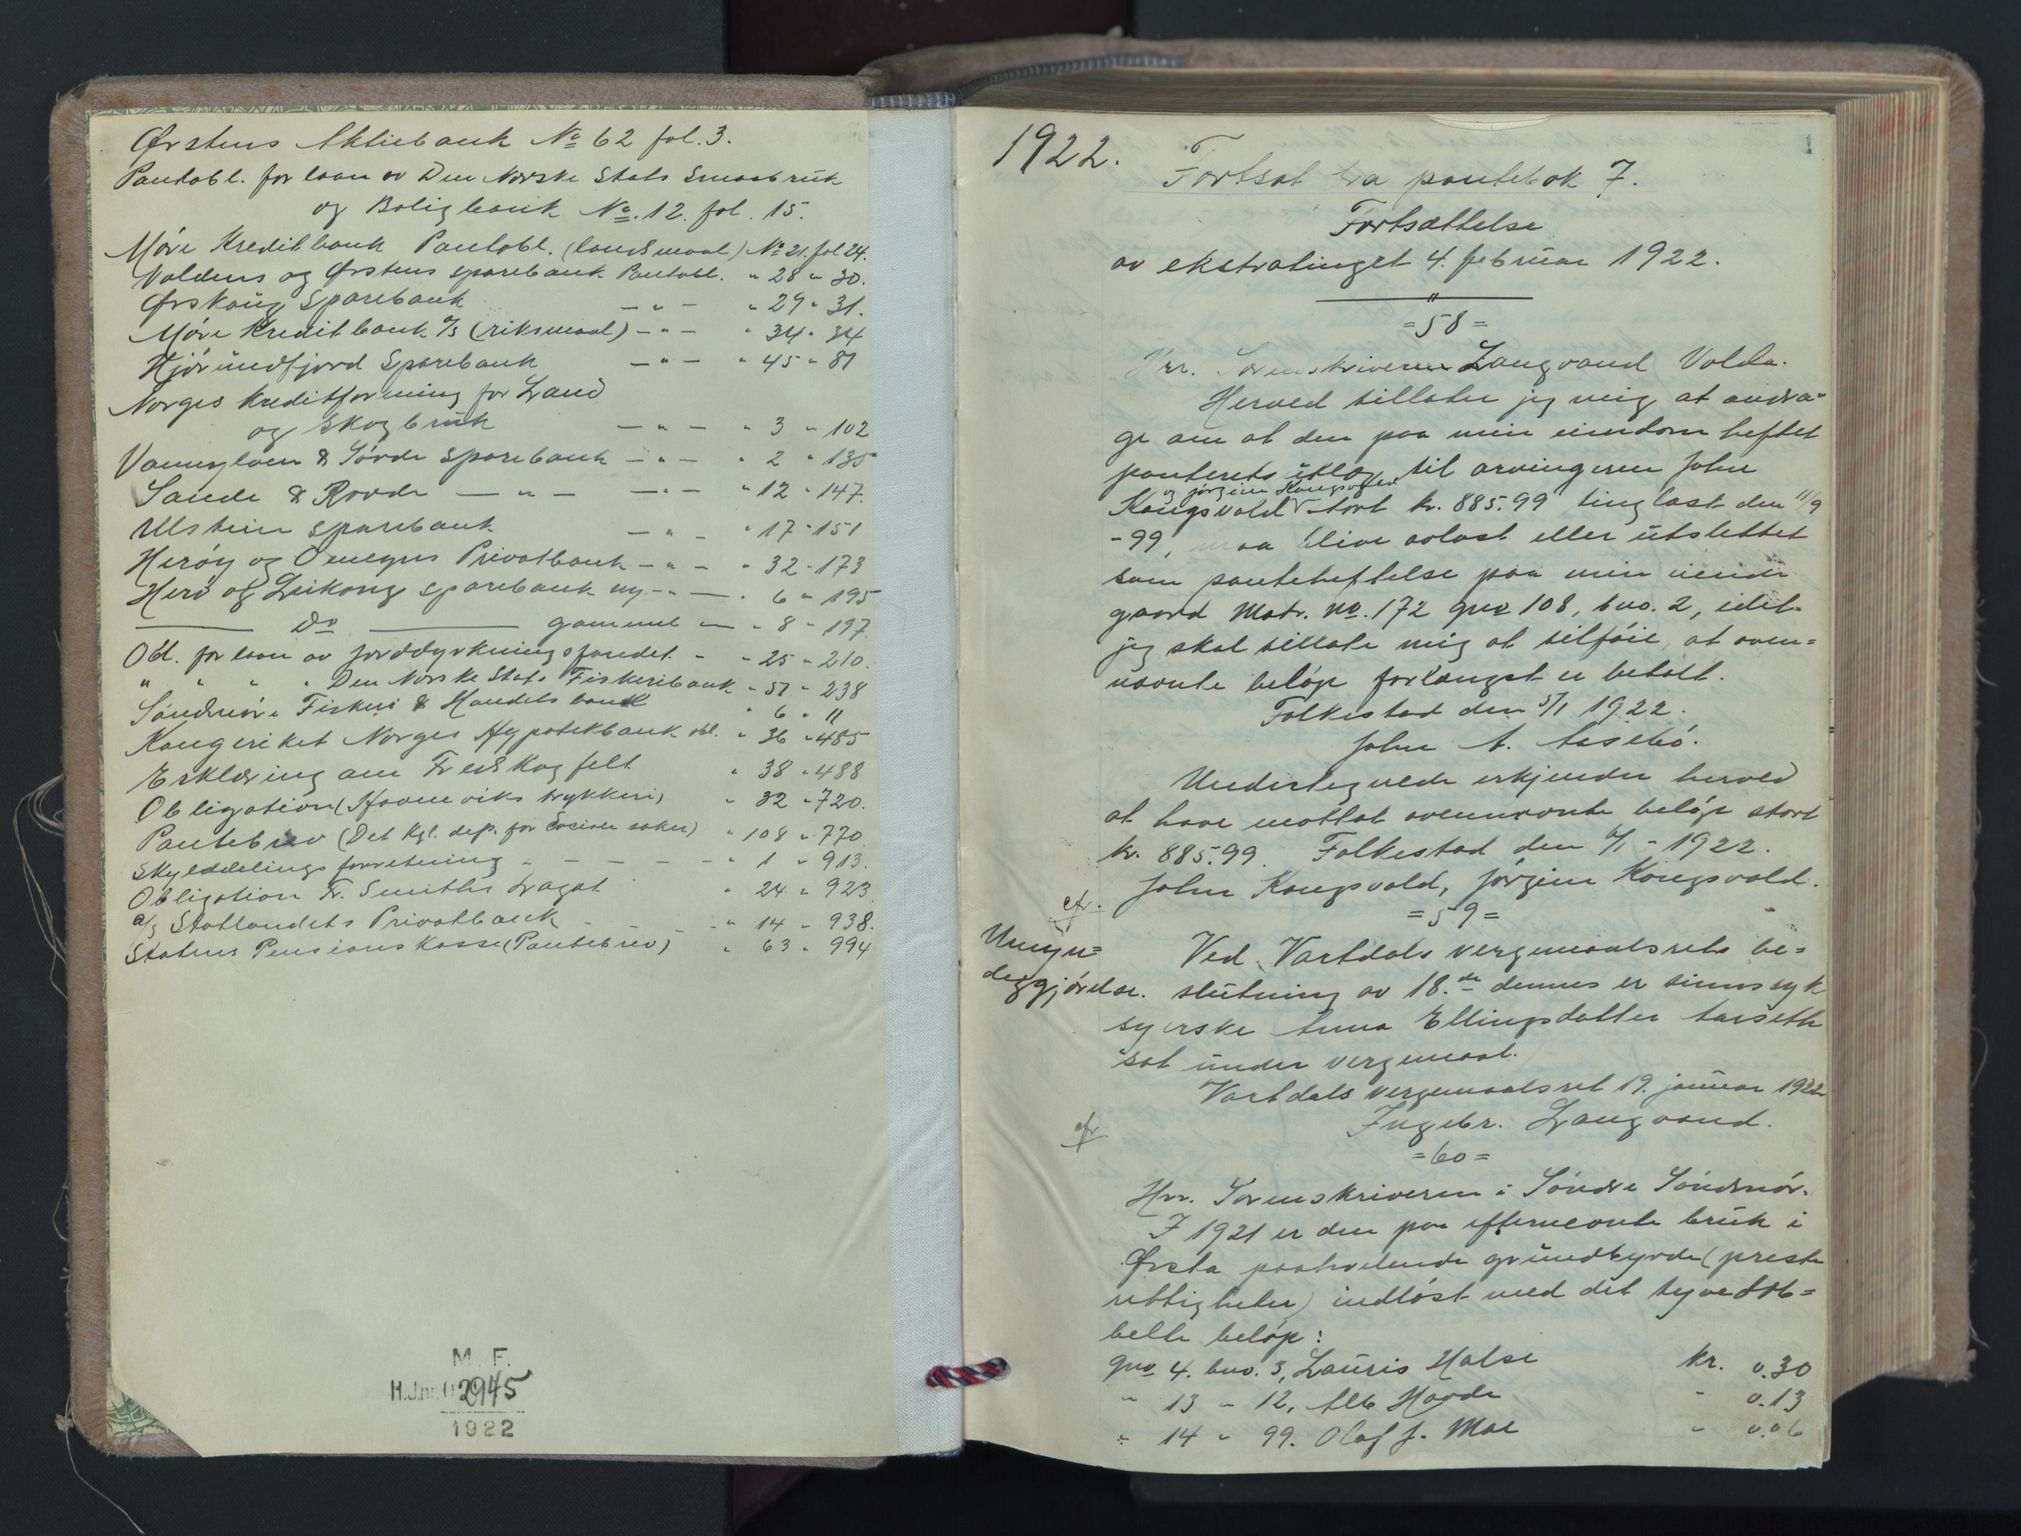 Ørstens Aktiebank No 62 fol. 3.
Pantobl. for laan av Den Norske Stats Smaabruk
og Boligbank No. 12. fol. 15.
Møre Kreditbank Pantobl. (landsmaal) No 21. fol 24.
Voldens og Ørstens sparebank Pantobl. " 28 " 30.
Ørskoug Sparebank — " — " 29 " 31.
Møre Kreditbank A/S (riksmaal) — " — " 34 " 34
Hjørundfjord Sparebank — " — " 45 " 81
Norges Kreditforening for Land
og Skogbruk — " — " 3 " 102
Vannylven & Søvde Sparebank — " — " 2 " 135
Sande & Rovde — " — — " — " 12 " 147.
Ulstein sparebank — " — " 17 " 151
Herøy og Oenegns Privatbank — " — " 32 " 173
Herø og Leikong sparebank ny — " — " 6 " 195
— Do — gammel — " 8 " 197.
Obl. for laan av jorddyrkningsfondet. " " 25 " 210.
" " " " Den Norske Stats Fiskeribank " 51 " 238
Søndmøre Fiskeri & Handelsbank " 6 " 11
Kongeriket Norges Hypotekbank obl. " 36 " 485
Erklæring om Fredskogfelt " 38 " 488
Obligation (Havneviks trykkeri) " 32 " 720.
Pantebrev (Det Kgl. dep. for Sociale saker) " 108 " 770.
Skylddelingsforretning - - - - - " 1 " 913.
Obligation Fr. Smiths Legat " 24 " 923
A/S Statlandets Privatbank - - - " 14 " 938.
Statens Pensionskasse (Pantebrev) " 63 " 994
M. F.
H.J.nr. 02945
1922
1
1922.
Fortsat fra pantebok 7.
Fortsættelse
av ekstratinget 4. februar 1922.
= 58 =
Hrr. Sorenskriveren Langvand Volda.
Herved tillater jeg mig at andra=
ge om at den paa min eiendom heftet
panterets utlæg til arvingerne John
og Jørgine Kongsvold
Kongsvold stort kr. 885.99 tinglæst den 11/9
-99, maa blive avløst eller utslettet
som panteheftelse paa min eiende
gaard Matr. No. 172 gno 108, bno. 2, idet
jeg skal tillate mig at tilføie, at oven=
nævnte beløp forlængst er betalt.
Folkestad den 5/1 1922.
John A. Aasebø.
Undertegnede erkjender herved
at have mottat ovennævnte beløp stort
kr. 885.99. Folkestad den 5/1 - 1922.
John Kongsvold, Jørgine Kongsvold.
cfr.
= 59 =
Umyn=
diggjørelse.
Ved Vartdals vergemaalsrets be=
slutning av 18.de dennes er sinnssyk
syerske Anna Ellingsdatter Aarseth
sat under vergemaal.
Vartdals vergemaalsret 19. januar 1922
Ingebr. Langvand.
cfr
= 60 =
Hrr. Sorenskriveren i Søndre Søndmør.
I 1921 er den paa efternevnte bruk i
Ørsta paahvilende grundbyrde (preste
rettigheter) indløst med det tyvedob=
belte beløp:
gno 4. bno. 3, Lauris Halse kr. 0.30
" 13 " 12, Alb Hovde " 0.13
" 14 " 99. Olaf J. Moe " 0.06